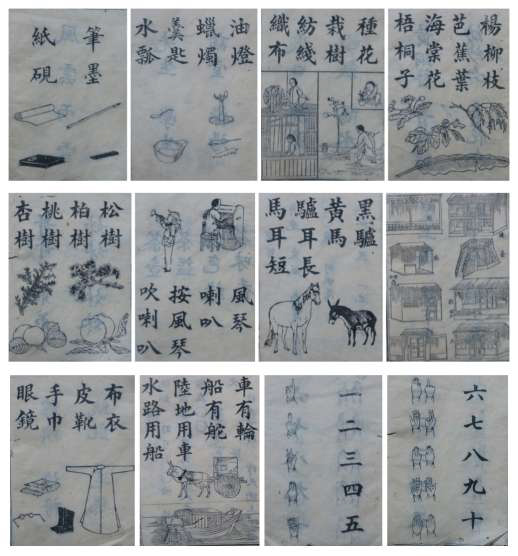 筆墨
紙硯
油燈
蠟燭
羹匙
水瓢
種花
栽樹
紡綫
織布
楊柳枝
芭蕉葉
海棠花
梧桐子
松樹
柏樹
桃樹
杏樹
風琴
喇叭
按風琴
吹喇叭
黑驢
黃馬
驢耳長
馬耳短
布衣
皮靴
手巾
眼鏡
車有輪
船有舵
陸地用車
水路用船
一
二
三
四
五
六
七
八
九
十